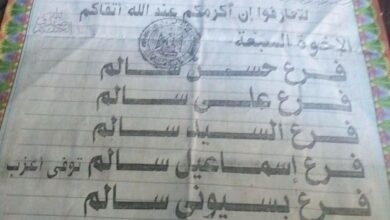 لتعارفوا إن أكرمكم عند الله أتقاكم
الأخوة السبعة
فرع حسن سالم
فرع على سالم
فرع السيد سالم
فرع إسماعيل سالم توفى أعزب
فرع بسيونى سالم